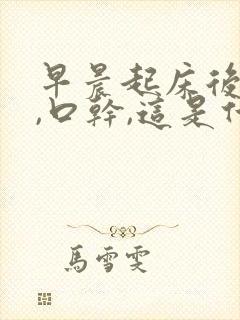 早晨起床後
,口幹,這是什
馬雪雯